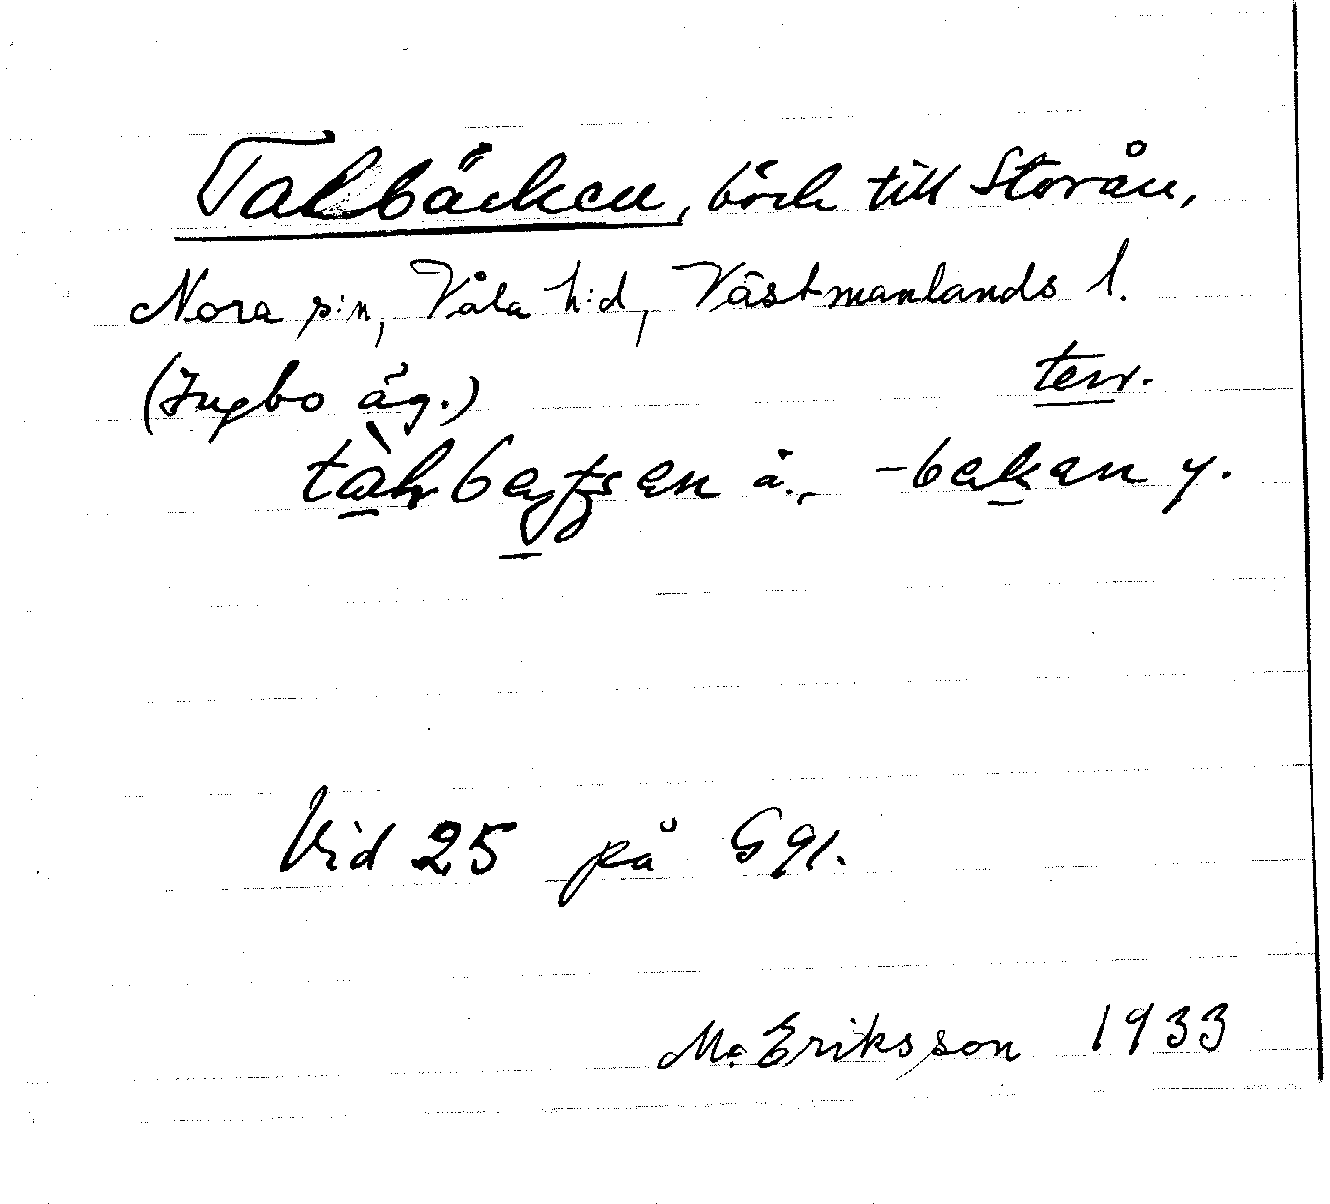 Talbäcken, bäck till Storån,
Nora s:n, Våla h:d, Västmanlands l.
(Ingbo äg.) terr.
å., -bekan y.
Vid 25 på G 91.
M. Eriksson 1933